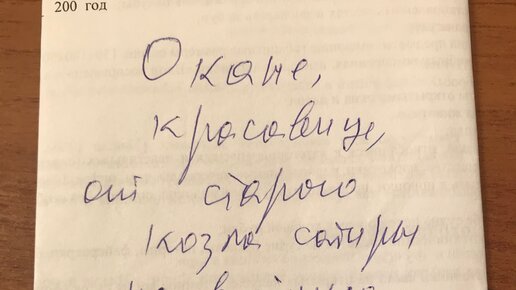 200 год
Окане,
красавице,
от старого
козла сатиры